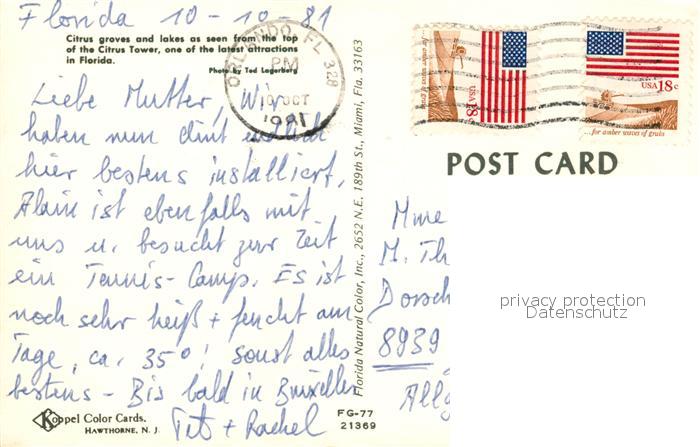 Florida 10-10-81
Citrus groves and lakes as seen from the top
of the Citrus Tower, one of the latest attractions
in Florida.
Photo by Ted Lagerberg
Liebe Mutter, Wir
haben nun
hier bestens installiert,
Alain ist ebenfalls mit
uns u. besucht zur Zeit
ein Tennis-Camp. Es ist
noch sehr heiß + feucht am
Tage, ca. 35°! sonst alles
bestens - Bis bald in Bruxelles
+ Rachel
Koppel Color Cards.
HAWTHORNE, N. J.
FG-77
21369
Florida Natural Color, Inc., 2652 N.E. 189th St., Miami, Fla. 33163
ORLANDO, FL 328
PM
10 OCT
1981
...for amber waves of grain
USA 18c
USA 18c
...for amber waves of grain
POST CARD
Mme
M. Th
Dorsch
8939
Allg
privacy protection
Datenschutz